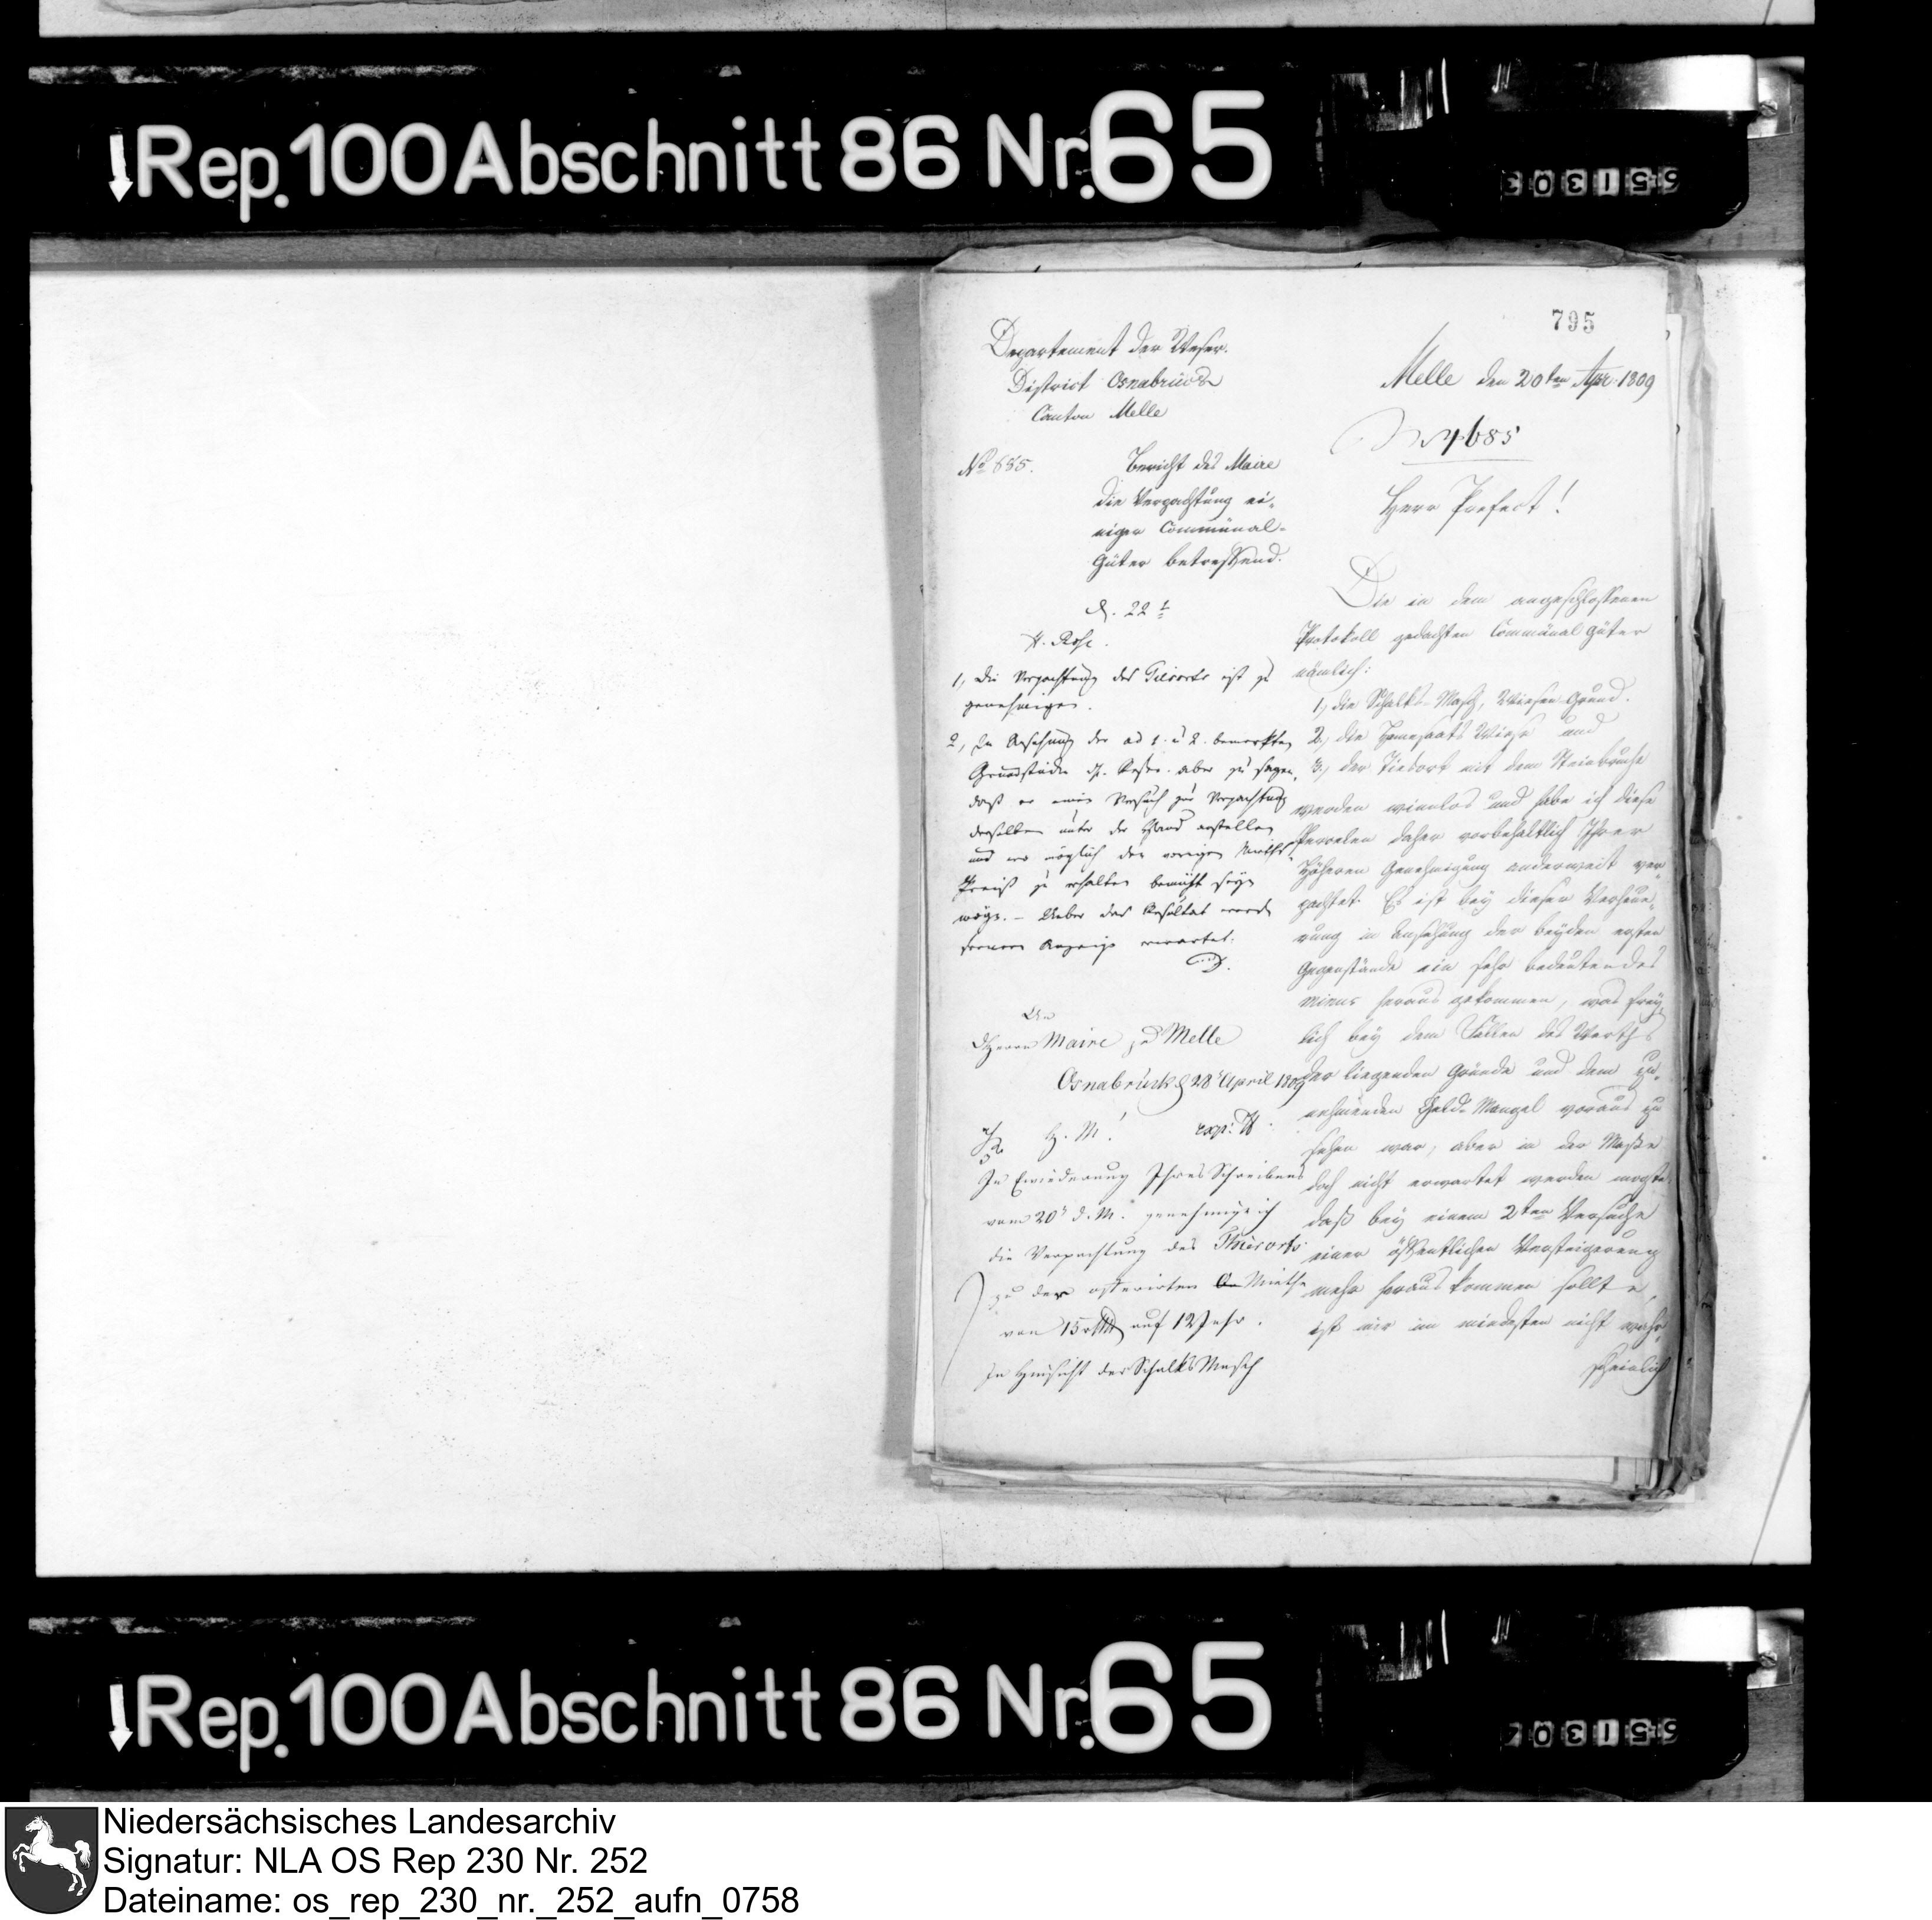 Rep. 100 Abschnitt 86 Nr. 65
651303
795
Departement der Weser.
District Osnabrück
Canton Melle
Melle den 20ten Apr. 1809
No 685.
Bericht des Maire
die Verpachtung ei-
niger Communal-
Güter betreffend.
4685
Herr Präfect!
Die in dem angeschlossenen
Protokoll gedachten Communal Güter
nämlich:
1, die Schalks-Masch, Wiesen Grund.
2, die Wiese und
3, der Tiedork mit dem Steinbruche
werden mienlos und habe ich diese
Percelen daher vorbehaltlich Ihrer
Höheren Genehmigung anderweit ver-
pachtet. Es ist bey dieser Verheue-
rung in Ansehung der beyden ersten
Gegenstände ein sehr bedeutendes
minus heraus gekommen, was frey-
lich bey dem Fallen des Werths
der liegenden Gründe und dem zu-
nehmenden Geld-Mangel voraus zu
sehen war, aber in der Maße
doch nicht erwartet werden mogte,
daß bey einem 2ten Versuche
einer öffentlichen Versteigerung
mehr heraus kommen sollte,
ist mir im mindesten nicht wahr-
scheinlich
R. 22
H. Rose.
1, Die Verpachtung des ist zu
genehmigen.
2, In Ansehung der ad 1. u 2. bemerkten
Grundstücke aber zu sagen,
daß er einen Versuch zur Verpachtung
derselben unter der Hand anstellen
und wo möglich den vorigen Mieth-
Preiß zu erhalten bemüht seyn
möge. – Ueber das Resultat werde
fernere Anzeige erwartet.
An
dHerrn Maire zu Melle
Osnabrück d 28 April 1809
H. M.!
exp:
In Erwiederung Ihres Schreibens
vom 20 d. M. genehmige ich
die Verpachtung des Thierorts
zu der offerirten Miethe
von 15 auf 12 Jahr.
In Hinsicht der Schalks Masch
Rep. 100 Abschnitt 86 Nr. 65
Niedersächsisches Landesarchiv
Signatur: NLA OS Rep 230 Nr. 252
Dateiname: os_rep_230_nr._252_aufn_0758